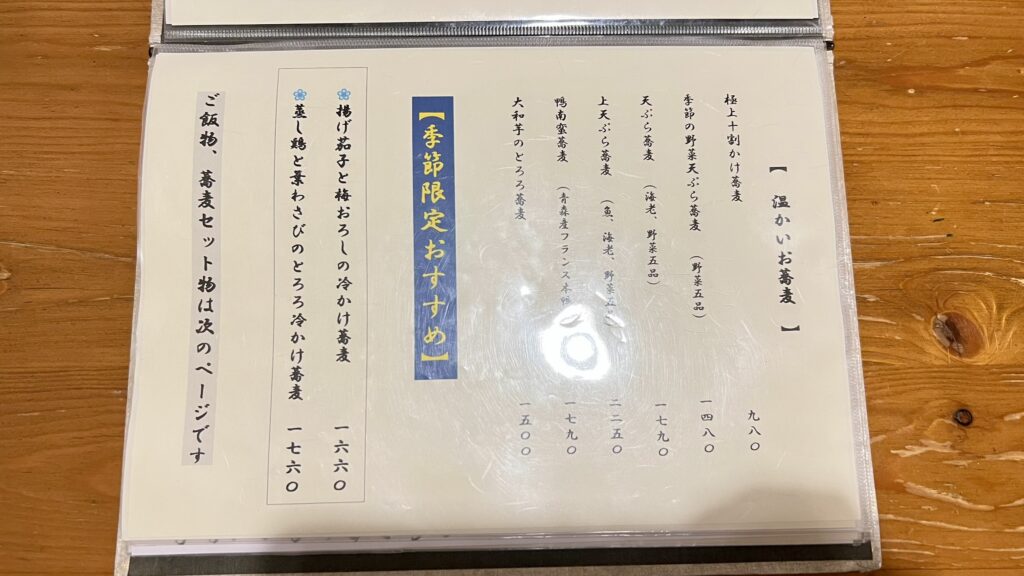 【温かいお蕎麦】
極上十割かけ蕎麦 九八〇
季節の野菜天ぷら蕎麦 (野菜五品) 一四八〇
天ぷら蕎麦 (海老、野菜五品) 一七九〇
上天ぷら蕎麦 (魚、海老、野菜五品) 二二五〇
鴨南蛮蕎麦 (青森産フランス本鴨) 一七九〇
大和芋のとろろ蕎麦 一五〇〇
【季節限定おすすめ】
揚げ茄子と梅おろしの冷かけ蕎麦 一六六〇
蒸し鶏と葉わさびのとろろ冷かけ蕎麦 一七六〇
ご飯物、蕎麦セット物は次のページです